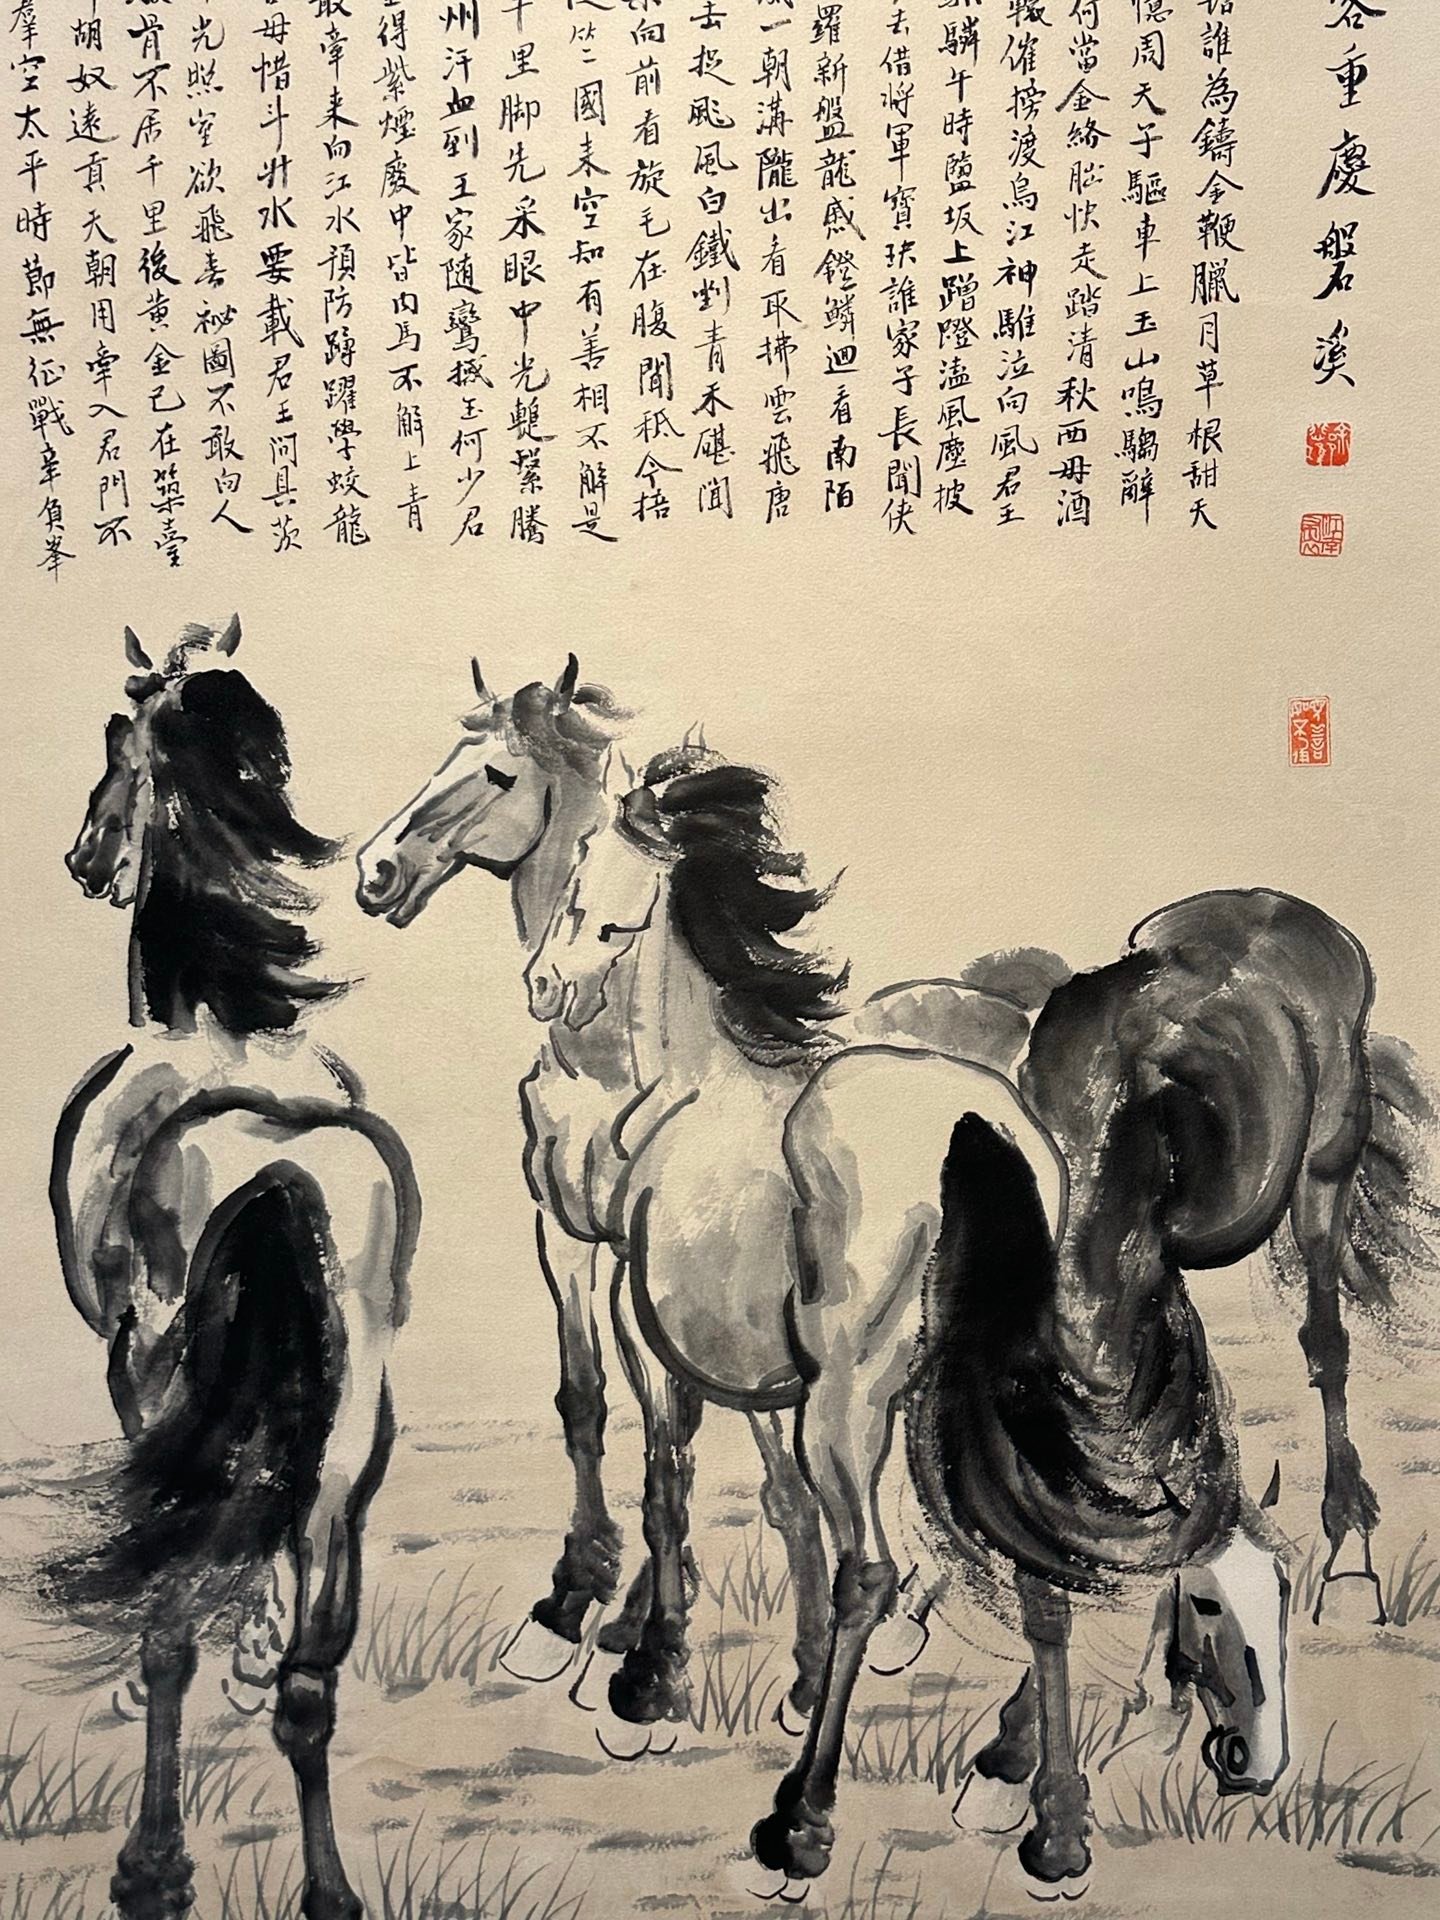 客重慶磐溪
誰為鑄金鞭臘月草根甜天
憶周天子驅車上玉山鳴騶辭
何當金絡腦快走踏清秋西母酒
催榜渡烏江神騅泣向風君王
驎午時鹽坂上蹭蹬溘風塵披
去借將軍寶玦誰家子長聞俠
羅新盤龍蹙鐙鱗迴看南陌
一朝溝隴出看取拂雲飛唐
去捉飈風白鐵剉青禾碪聞
向前看旋毛在腹間秖今掊
從竺國來空知有善相不解是
千里腳先采眼中光鞚繫騰
州汗血到王家隨鸞撼玉何少君
得紫煙廢中皆肉馬不解上青
敢牽來向江水預防蹲躍學蛟龍
毋惜斗升水要載君王問具茨
光照室欲飛去祕圖不敢向人
肯不居千里後黃金已在築臺
胡奴遠貢天朝用牽入君門不
羣空太平時節無征戰辜負峯
江南